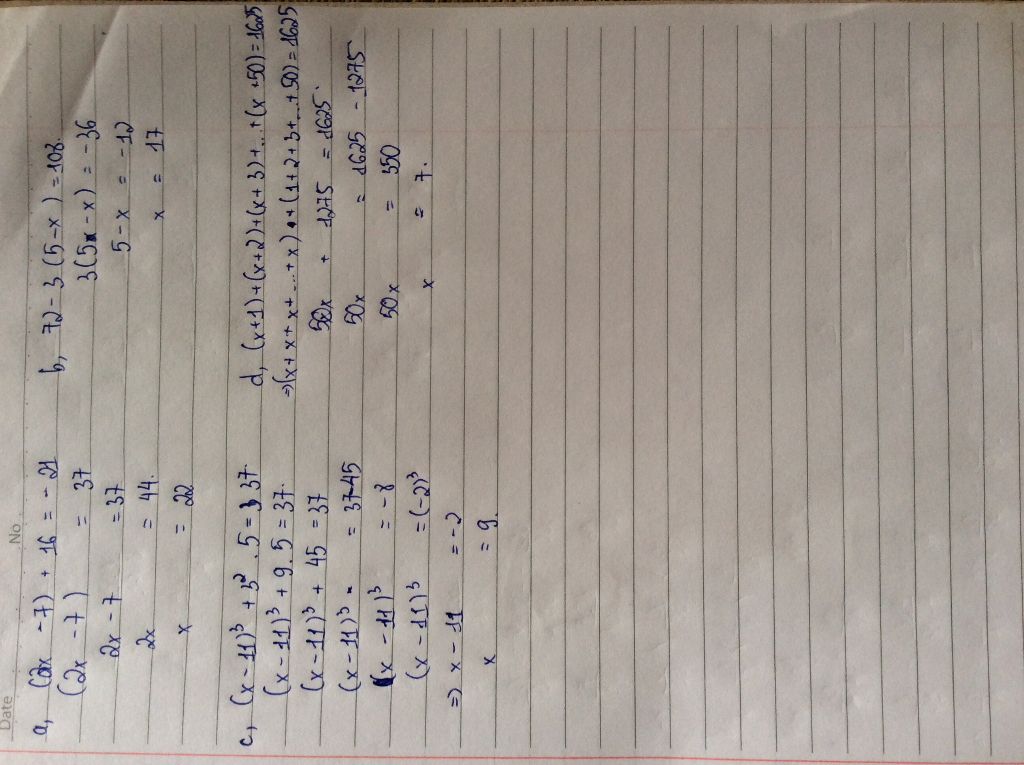 Date
No
a, (2x - 7) + 16 = - 21
(2x - 7) = 37
2x - 7 = 37
2x = 44.
x = 22
b, 72 - 3(5-x) = 108.
3(5 - x) = -36
5-x = -12
x = 17
c, (x - 11)³ + 3² . 5 = 37.
(x - 11)³ + 9 . 5 = 37.
(x - 11)³ + 45 = 37
(x - 11)³ = 37-45
(x - 11)³ = -8
(x - 11)³ = (-2)³
=) x - 11 = -2
x = 9.
d, (x+1)+(x+2)+(x+3)+...+(x+50)=1625
=)(x+x+x+...+x)+(1+2+3+...+50)=1625
50x + 1275 = 1625.
50x = 1625 - 1275
50x = 350
x = 7.